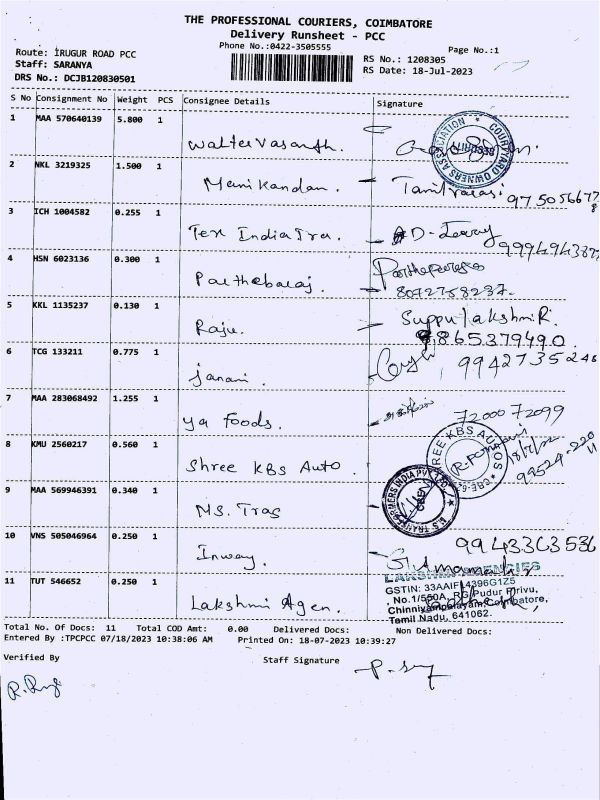 THE PROFESSIONAL COURIERS, COIMBATORE
Delivery Runsheet - PCC
Phone No.:0422-3505555
Page No.:1
Route: IRUGUR ROAD PCC
Staff: SARANYA
DRS No.: DCJB120830501
RS No.: 1208305
RS Date: 18-Jul-2023
S No Consignment No Weight PCS Consignee Details Signature
1 MAA 570640139 5.800 1
Walter Vasanth.
COURTYARD OWNERS ASSOCIATION
2 NKL 3219325 1.500 1
Manikandan. Tamilvarasi
3 ICH 1004582 0.255 1
Tex India Tra. D-Jerry
4 HSN 6023136 0.300 1
Parthebaraj.
8072758237
5 KKL 1135237 0.130 1
Raju. Suppulakshmi R.
8865379490.
6 TCG 133211 0.775 1
Janani. 9942735246
7 MAA 283068492 1.255 1
Ya Foods. 7200072099
8 KMU 2560217 0.560 1
Shree KBS Auto.
SHREE KBS AUTOS
9 MAA 569946391 0.340 1
M.S. Tras
M.S. TRANSFORMERS INDIA PVT LTD
10 VNS 505046964 0.250 1
9943363536
Inway.
11 TUT 546652 0.250 1
Lakshmi Agen.
LAKSHMI AGENCIES
GSTIN: 33AAIFL4396G1Z5
No.1/550A, RG Pudur Pirivu,
Chinniyampalayam, Coimbatore,
Tamil Nadu, 641062.
Total No. Of Docs: 11 Total COD Amt: 0.00 Delivered Docs: Non Delivered Docs:
Entered By :TPCPCC 07/18/2023 10:38:06 AM Printed On: 18-07-2023 10:39:27
Verified By Staff Signature